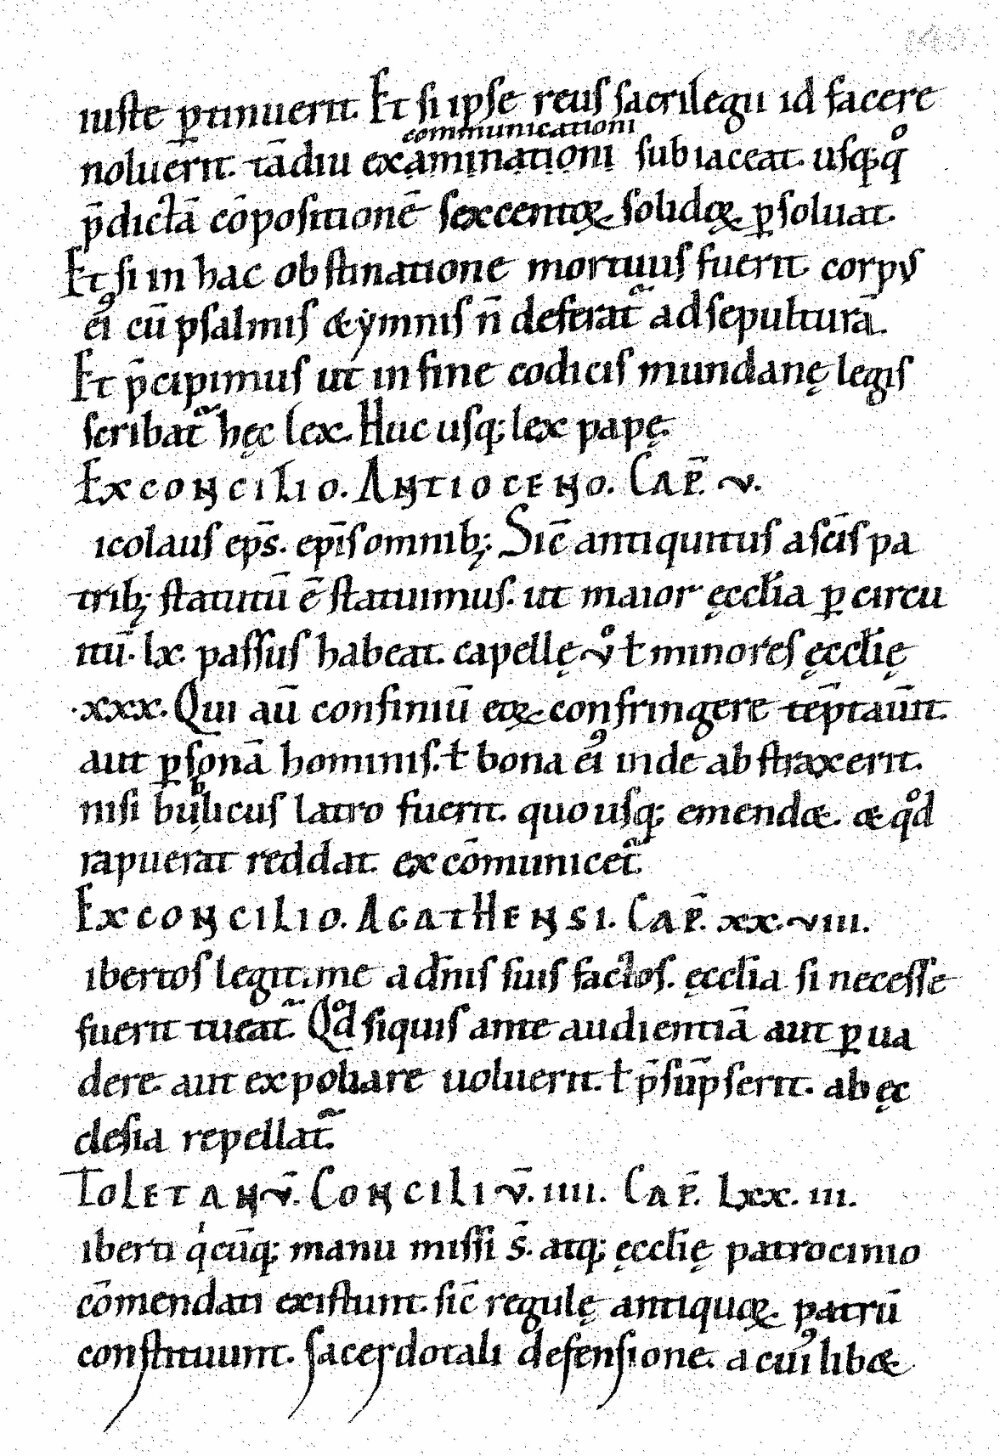 140.
iuste ꝑtinuerit. Et si ipse reus sacrilegii id facere
communicationi
noluerit. tādiu examinationi subiaceat. usq;q̊
p̄dictā cōpositionē sexcentoꝝ solidoꝝ ꝑsoluat.
Et si in hac obstinatione mortuus fuerit corpꝰ
eiꝰ cū psalmis & ymnis n̄ deferat᷑ ad sepulturā.
Et p̄cipimus ut in fine codicis mundanę legis
scribat᷑ hęc lex. Huc usq; lex papę.
EX CONCILIO. ANTIOCENO. CAP̄. V.
icolaus ep̄s. ep̄is omnib;. Sic̄ antiquitus a sc̄is pa
trib; statutū ē statuimus. ut maior ęccl̄ia ꝑ circu
itū. lx. passus habeat. capellę v̊ ł minores ęccl̄ię
.xxx. Qui aū confiniū eoꝝ confringere tēptaūit.
aut ꝑsonā hominis. ł bona eiꝰ inde abstraxerit.
nisi publicus latro fuerit. quousq; emend&. & qd̊
rapuerat reddat. excōmunicet᷑.
EX CONCILIO. AGATHENSI. CAP̄. XX.VIII.
ibertos legitime a dn̄is suis factos. ęccl̄ia si necesse
fuerit tueat᷑. Qd̊ siquis ante audientiā aut ꝑua
dere. aut expoliare uoluerit. ł p̄sūpserit. ab ęc
clesia repellat᷑.
TOLETANV̄. CONCILIV̄. IIII. CAP̄. LXX.III.
iberti q̇cūq; manu missi s̄. atq; ęccl̄ię patrocinio
cōmendati existunt. sic̄ regulę antiquoꝝ patrū
constituunt. sacerdotali defensione. a cuiꝰlib&